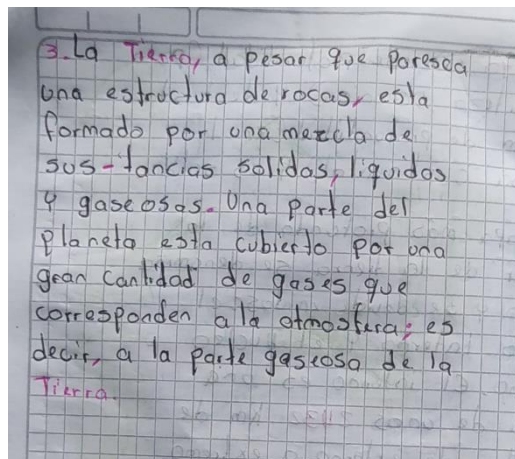 3. La Tierra, a pesar que paresca
una estructura de rocas, esta
formado por una mezcla de
sus-tancias solidas, liquidas
y gaseosas. Una parte del
planeta esta cubierto por una
gran cantidad de gases que
corresponden a la atmosfera; es
decir, a la parte gaseosa de la
Tierra.